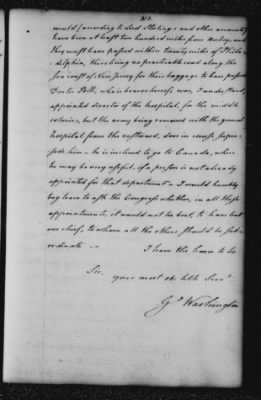 212.
would (according to Lord Stirlings and other accounts)
have been at least two hundred miles from
they must have passed within twenty miles of Phila-
delphia, there being no practicable road along the
Sea coast of New Jersey for their baggage to have passed
Doctor Potts, who is bearer hereof, was, I understand,
appointed director of the hospital, for the middle
colonies, but the army being removed with the general
Hospital from the eastward, does in course super-
sede him — he is inclined to go to Canada, where
he may be very useful, if a person is not already
appointed for that department — I would humbly
beg leave to ask the Congress whether, in all these
appointments, it would not be best, to have but
one chief, to whom all the others should be sub-
ordinate —
I have the honor to be
Sir,
your most ob. hble Servt
Go Washington